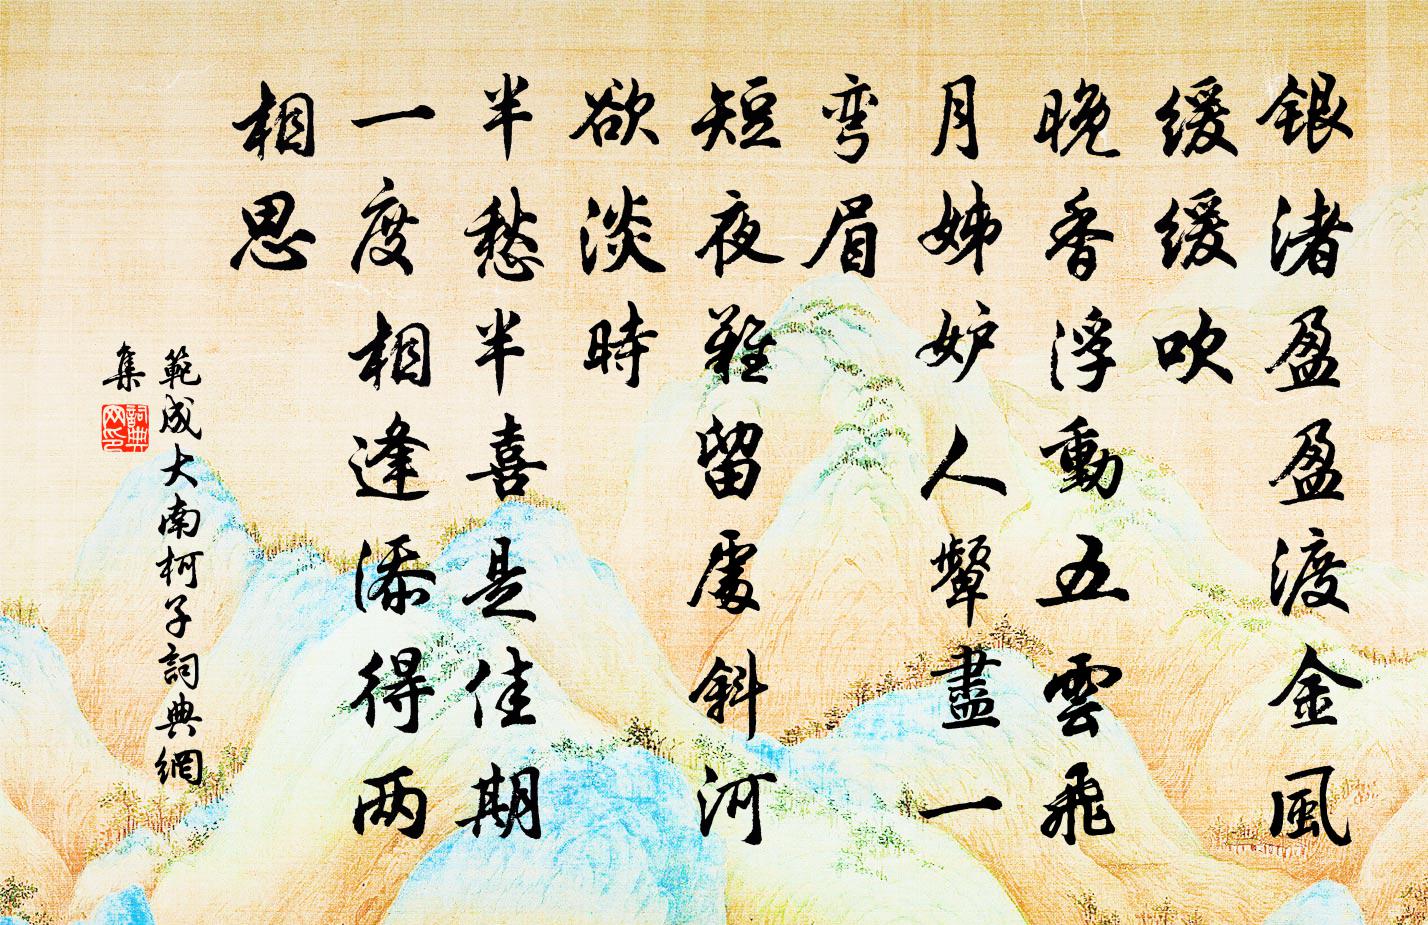 銀渚盈盈渡金風
緩緩吹
晚香浮動五雲飛
月姊妒人顰盡一
彎眉
短夜難留處斜河
欲淡時
半愁半喜是佳期
一度相逢添得两
相思
範成大南柯子詞典網
集
詞典网印